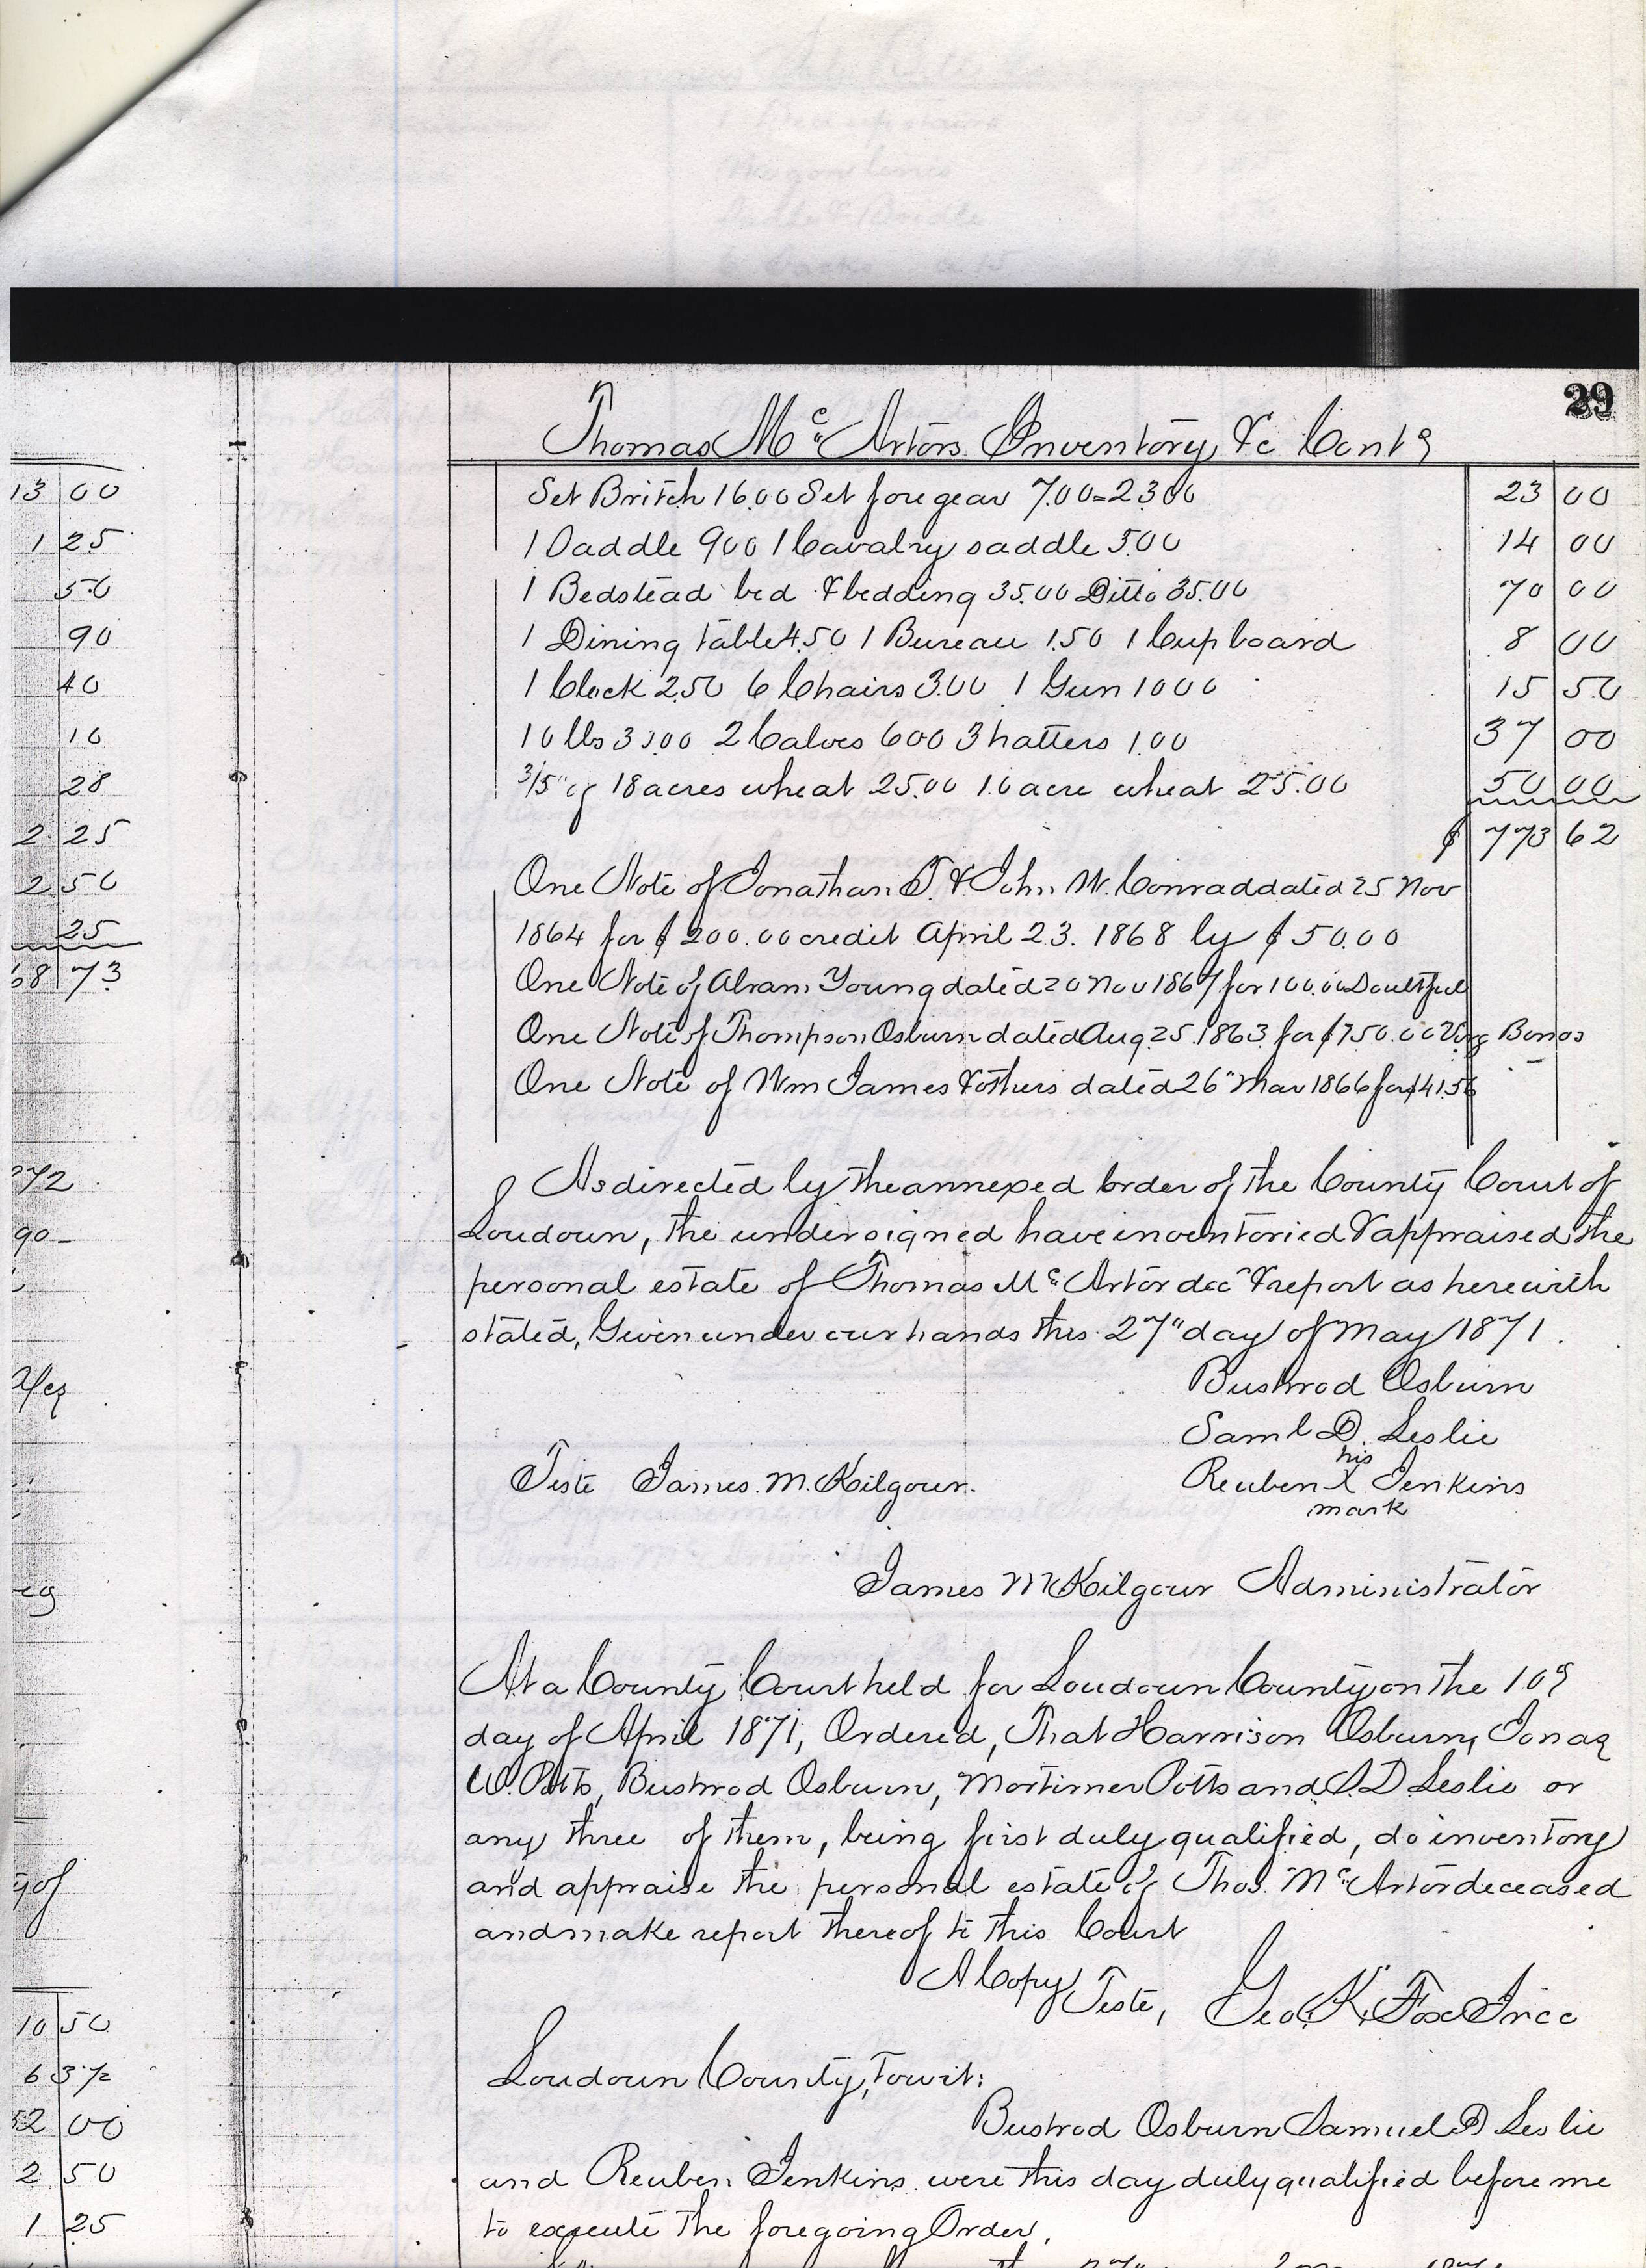 29
Thomas McArtors Inventory &c Contd
Set Britch 16.00 Set fore gear 7.00 = 23 00 23 00
1 Saddle 9 00 1 Cavalry saddle 5.00 14 00
1 Bedstead bed & bedding 35.00 Ditto 35.00 70 00
1 Dining table 4.50 1 Bureau 1.50 1 Cupboard 8 00
1 Clock 2.50 6 Chairs 3.00 1 Gun 10 00 15 50
2 Calves 6 00 3 1.00 37 00
3/5" of 18 acres wheat 25.00 10 acre wheat 25.00 50 00
$ 773 62
One Note of Jonathan T & John W. Conrad dated 25 Nov
1864 for $ 200.00 credit April 23. 1868 by $ 50.00
One Note of Abram Young dated 20 Nov 1867 for 100.00 Doubtful
One Note of Thompson Osburn dated Aug 25. 1863 for $ 750.00 Bonds
One Note of Wm James & others dated 26" Mar 1866 for $ 41.56
As directed by the annexed order of the County Court of
Loudoun, the undersigned have inventoried & appraised the
personal estate of Thomas McArtor decd & report as herewith
stated, Given under our hands this 27" day of May 1871.
Bushrod Osburn
Saml D. Leslie
his
Teste James. M. Kilgour. Reuben X Jenkins
mark
James M Kilgour Administrator
At a County Court held for Loudoun County on the 10d
day of April 1871, Ordered, That Harrison Osburn, Jonas
W. Potts, Bushrod Osburn, Mortimer Potts and S. D Leslie or
any three of them, being first duly qualified, do inventory
and appraise the personal estate of Thos. McArtor deceased
and make report thereof to this Court
A Copy Teste, Geo. K. Fox
Loudoun County, Towit:
Bushrod Osburn Samuel D Leslie
and Reuben Jenkins were this day duly qualified before me
to execute the foregoing Order.
13 00
1 25
50
90
40
10
28
2 25
2 50
25
68 73
90
yof
10 50
6 37½
52 00
2 50
1 25